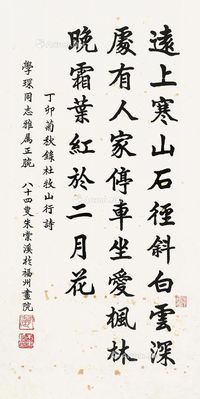 遠上寒山石徑斜白雲深
處有人家停車坐愛楓林
晚霜葉紅於二月花
丁卯菊秋錄杜牧山行詩
學琛同志雅屬正腕 八十四叟朱棠溪於福州畫院